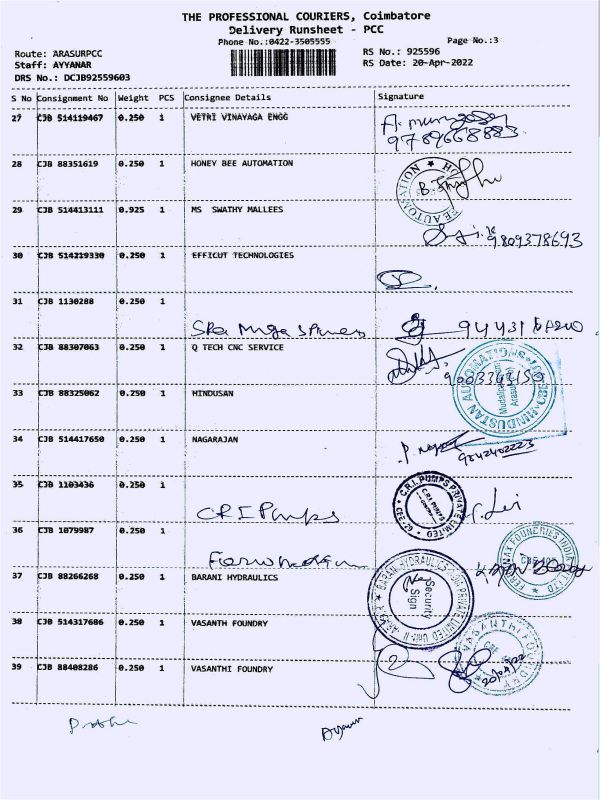 THE PROFESSIONAL COURIERS, Coimbatore
Delivery Runsheet - PCC
Phone No.:0422-3505555
Page No.:3
Route: ARASURPCC
RS No.: 925596
Staff: AYYANAR
RS Date: 20-Apr-2022
DRS No.: DCJB92559603
S No Consignment No Weight PCS Consignee Details Signature
27 CJB 514119467 0.250 1 VETRI VINAYAGA ENGG
9789668883
28 CJB 88351619 0.250 1 HONEY BEE AUTOMATION
29 CJB 514413111 0.925 1 MS SWATHY MALLEES
9809378693
30 CJB 514219330 0.250 1 EFFICUT TECHNOLOGIES
31 CJB 1130288 0.250 1
32 CJB 88307063 0.250 1 Q TECH CNC SERVICE
9003343150
33 CJB 88325062 0.250 1 HINDUSAN
34 CJB 514417650 0.250 1 NAGARAJAN
9842402223
35 CJB 1103436 0.250 1 CRI Pumps
C.R.I. PUMPS PRIVATE LIMITED
36 CJB 1079987 0.250 1
37 CJB 88266268 0.250 1 BARANI HYDRAULICS
Security
Sign
38 CJB 514317686 0.250 1 VASANTH FOUNDRY
39 CJB 88408286 0.250 1 VASANTHI FOUNDRY